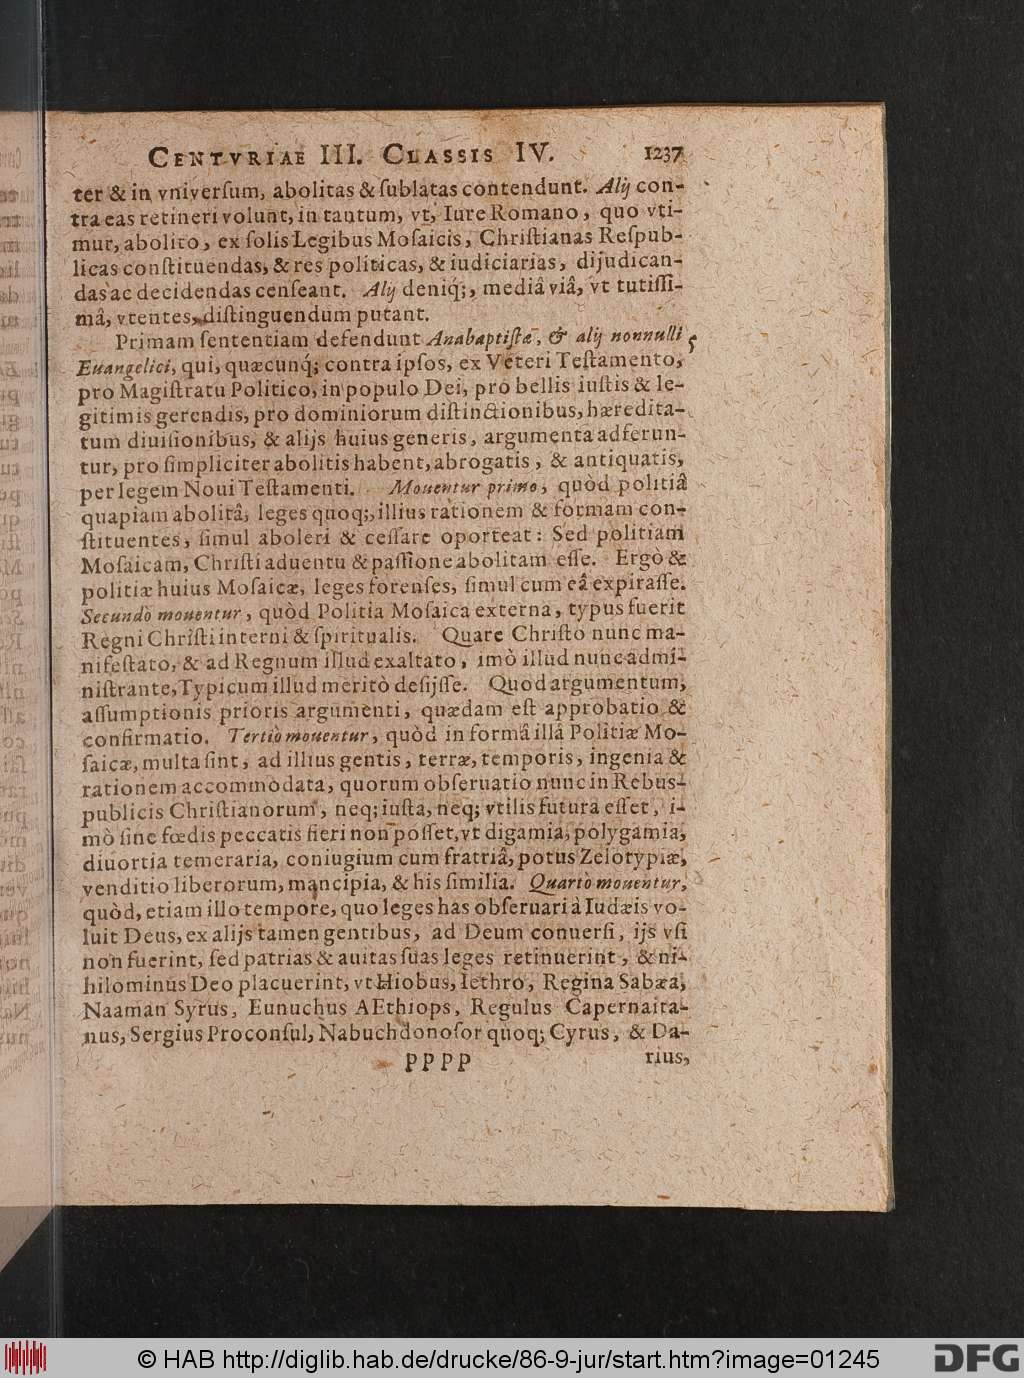 CENTVRIAE III. CLASSIS IV. 1237
ter & in vniverſum, abolitas & ſublatas contendunt. Alij con-
tra eas retineri volunt, in tantum, vt, Iure Romano, quo vti-
mur, abolito, ex ſolis Legibus Moſaicis, Chriſtianas Reſpub-
licas conſtituendas, & res politicas, & iudiciarias, dijudican-
das ac decidendas cenſeant. Alij deniq́;, mediâ viâ, vt tutiſſi-
mâ, vtentes, diſtinguendum putant.
Primam ſententiam defendunt Anabaptiſtæ, & alij nonnulli
Euangelici, qui, quæcunq́; contra ipſos, ex Veteri Teſtamento,
pro Magiſtratu Politico, in populo Dei, pro bellis iuſtis & le-
gitimis gerendis, pro dominiorum diſtinctionibus, hæredita-
tum diuiſionibus, & alijs huius generis, argumenta adferun-
tur, pro ſimpliciter abolitis habent, abrogatis, & antiquatis,
per legem Noui Teſtamenti. Mouentur primo, quòd politiâ
quapiam abolitâ, leges quoq;, illius rationem & formam con-
ſtituentes, ſimul aboleri & ceſſare oporteat: Sed politiam
Moſaicam, Chriſti aduentu & paſſione abolitam eſſe. Ergò &
politiæ huius Moſaicæ, leges forenſes, ſimul cum eâ expiraſſe.
Secundò mouentur, quòd Politia Moſaica externa, typus fuerit
Regni Chriſti interni & ſpiritualis. Quare Chriſto nunc ma-
nifeſtato, & ad Regnum illud exaltato, imò illud nunc admi-
niſtrante, Typicum illud meritò deſijſſe. Quod argumentum,
aſſumptionis prioris argumenti, quædam eſt approbatio &
confirmatio. Tertiò mouentur, quòd in formâ illâ Politiæ Mo-
ſaicæ, multa ſint, ad illius gentis, terræ, temporis, ingenia &
rationem accommodata, quorum obſeruatio nunc in Rebus-
publicis Chriſtianorum, neq; iuſta, neq; vtilis futura eſſet, i-
mò ſine fœdis peccatis fieri non poſſet, vt digamia, polygamia,
diuortia temeraria, coniugium cum fratriâ, potus Zelotypiæ,
venditio liberorum, mancipia, & his ſimilia. Quartò mouentur,
quòd, etiam illo tempore, quo leges has obſeruari à Iudæis vo-
luit Deus, ex alijs tamen gentibus, ad Deum conuerſi, ijs vſi
non fuerint, ſed patrias & auitas ſuas leges retinuerint, & ni-
hilominùs Deo placuerint, vt Hiobus, Iethro, Regina Sabæa,
Naaman Syrus, Eunuchus AEthiops, Regulus Capernaita-
nus, Sergius Proconſul, Nabuchdonoſor quoq; Cyrus, & Da-
pppp rius,
© HAB http://diglib.hab.de/drucke/86-9-jur/start.htm?image=01245 DFG